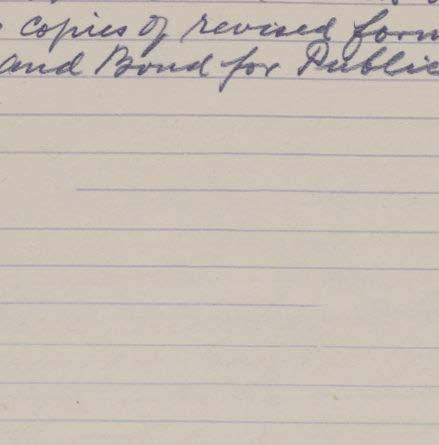 copies of revised form
and Bond for Public